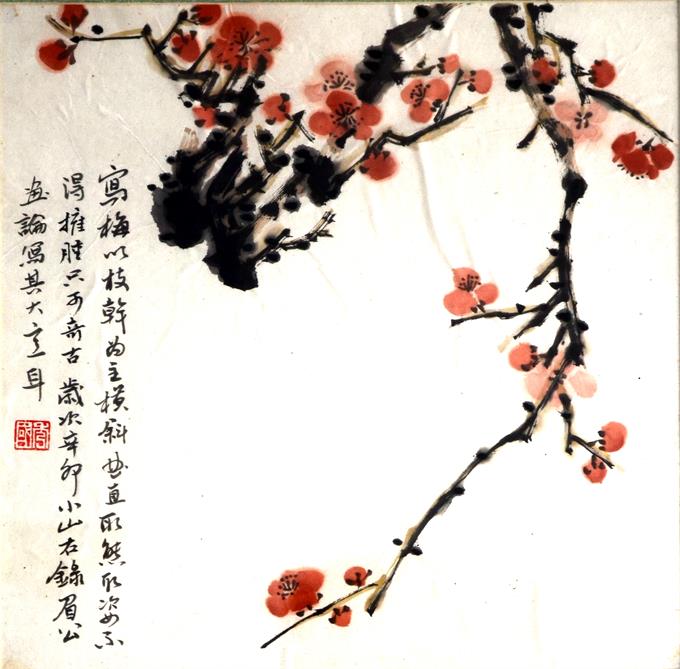 寫梅以枝幹為主橫斜曲直取態取姿不
得擁腫只可奇古 歲次辛卯小山右錄眉公
畫論寫其大意耳